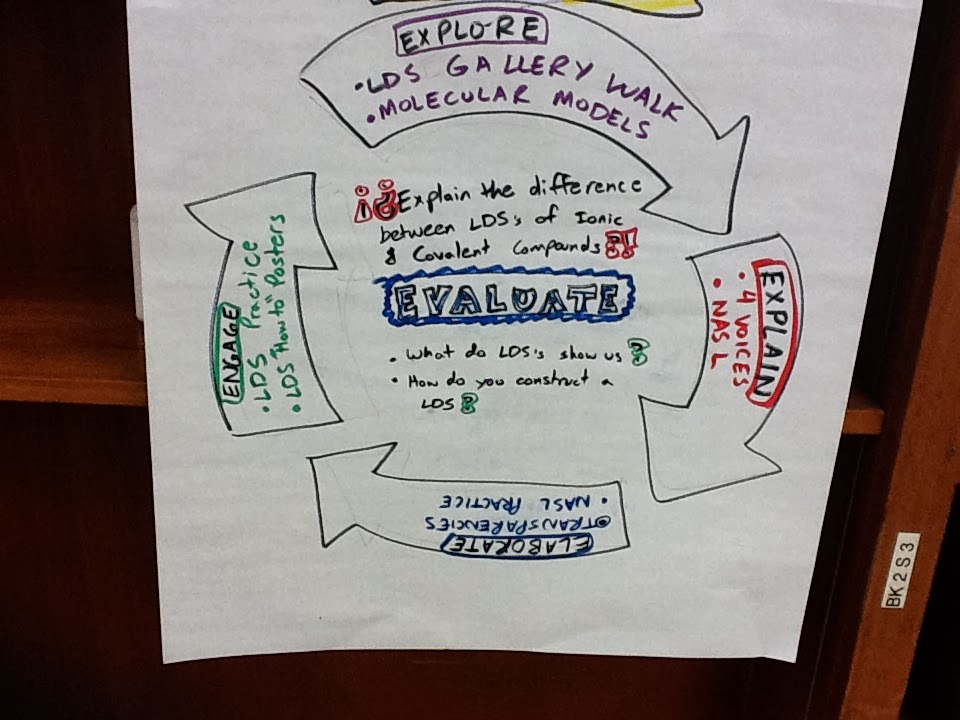 EXPLORE
• LDS GALLERY WALK
• MOLECULAR MODELS
EXPLAIN
• 4 VOICES
• NASL
ELABORATE
• TRANSPARENCIES
• NASL PRACTICE
ENGAGE
• LDS Practice
• LDS "How to" Posters
¡¿Explain the difference
between LDS's of Ionic
& Covalent Compounds?!
EVALUATE
• What do LDS's show us?
• How do you construct a
LDS?
BK 2 S 3